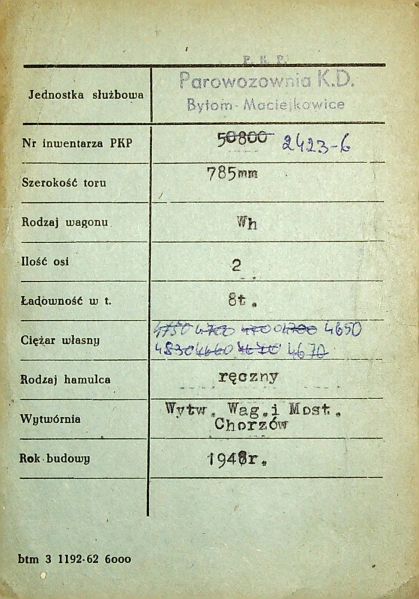 P. K. P.
Jednostka służbowa Parowozownia K.D.
Bytom-Maciejkowice
Nr inwentarza PKP 50800 2423-6
Szerokość toru 785mm
Rodzaj wagonu Wh
Ilość osi 2
Ładowność w t. 8t.
Ciężar własny 4750 4700 4700 4650
4830 4660 4670
Rodzaj hamulca ręczny
Wytwórnia Wytw. Wag. i Most.
Chorzów
Rok budowy 1948r.
btm 3 1192-62 6000